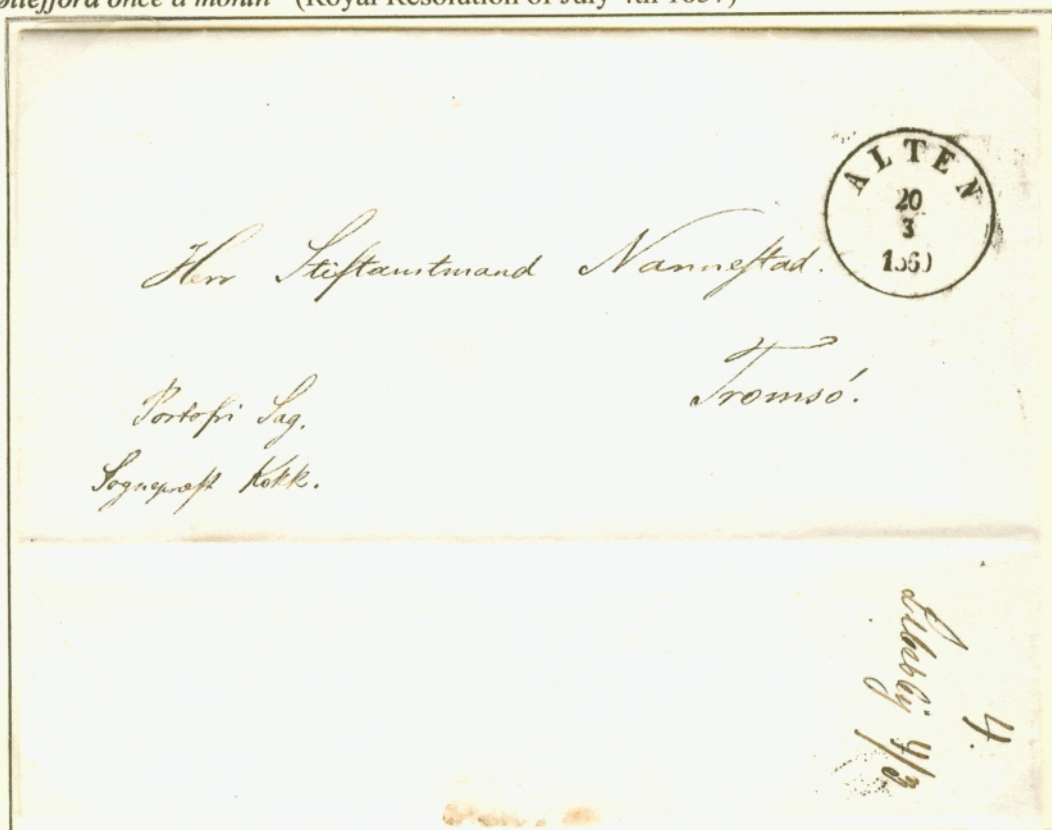 once a month" (Royal Resolution of July 4th 1857)
ALTEN
20
3
Herr Stiftamtmand Nannestad.
Tromsö.
Portofri Sag.
Sogneprest Kokk.
4.
4/3